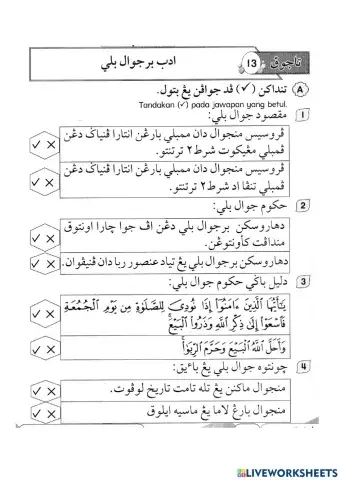 تاجوق 13
ادب برجوال بلي
A تنداکن (✓) ڤد جواڤن يڠ بتول.
Tandakan (✓) pada jawapan yang betul.
1 مقصود جوال بلي:
ڤروسيس منجوال دان ممبلي بارڠن انتارا ڤنياݢ دڠن
ڤمبلي مڠيکوت شرط٢ ترتنتو.
ڤروسيس منجوال دان ممبلي بارڠن انتارا ڤنياݢ دڠن
ڤمبلي تنڤا اد شرط٢ ترتنتو.
2 حکوم جوال بلي:
دهاروسکن برجوال بلي دڠن اڤ جوا چارا اونتوق
منداڤت کأونتوڠن.
دهاروسکن برجوال بلي يڠ تياد عنصور ربا دان ڤنيڤوان.
3 دليل باݢي حکوم جوال بلي:
يَـٰٓأَيُّهَا ٱلَّذِينَ ءَامَنُوٓا۟ إِذَا نُودِىَ لِلصَّلَوٰةِ مِن يَوْمِ ٱلْجُمُعَةِ
فَٱسْعَوْا۟ إِلَىٰ ذِكْرِ ٱللَّهِ وَذَرُوا۟ ٱلْبَيْعَ
وَأَحَلَّ ٱللَّهُ ٱلْبَيْعَ وَحَرَّمَ ٱلرِّبَوٰا۟
4 چونتوه جوال بلي يڠ باءيق:
منجوال ماکنن يڠ تله تامت تاريخ لوڤوت.
منجوال بارڠ لاما يڠ ماسيه ايلوق
LIVEWORKSHEETS